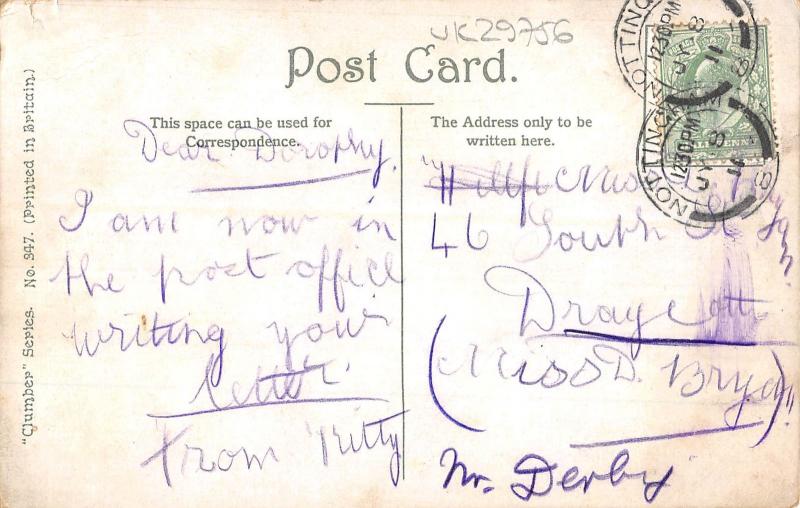 UK29756
Post Card.
This space can be used for
Correspondence.
The Address only to be
written here.
"Clumber" Series. No. 347. (Printed in Britain.)
Dear Dorothy.
I am now in
the post office
writing your
letter
from Kitty
Miss
46 South St
Draycott
(Miss D. Bryan)
Nr. Derby
NOTTINGHAM
1230PM
JY 8
11
NOTTINGHAM
1230PM
JY 8
11